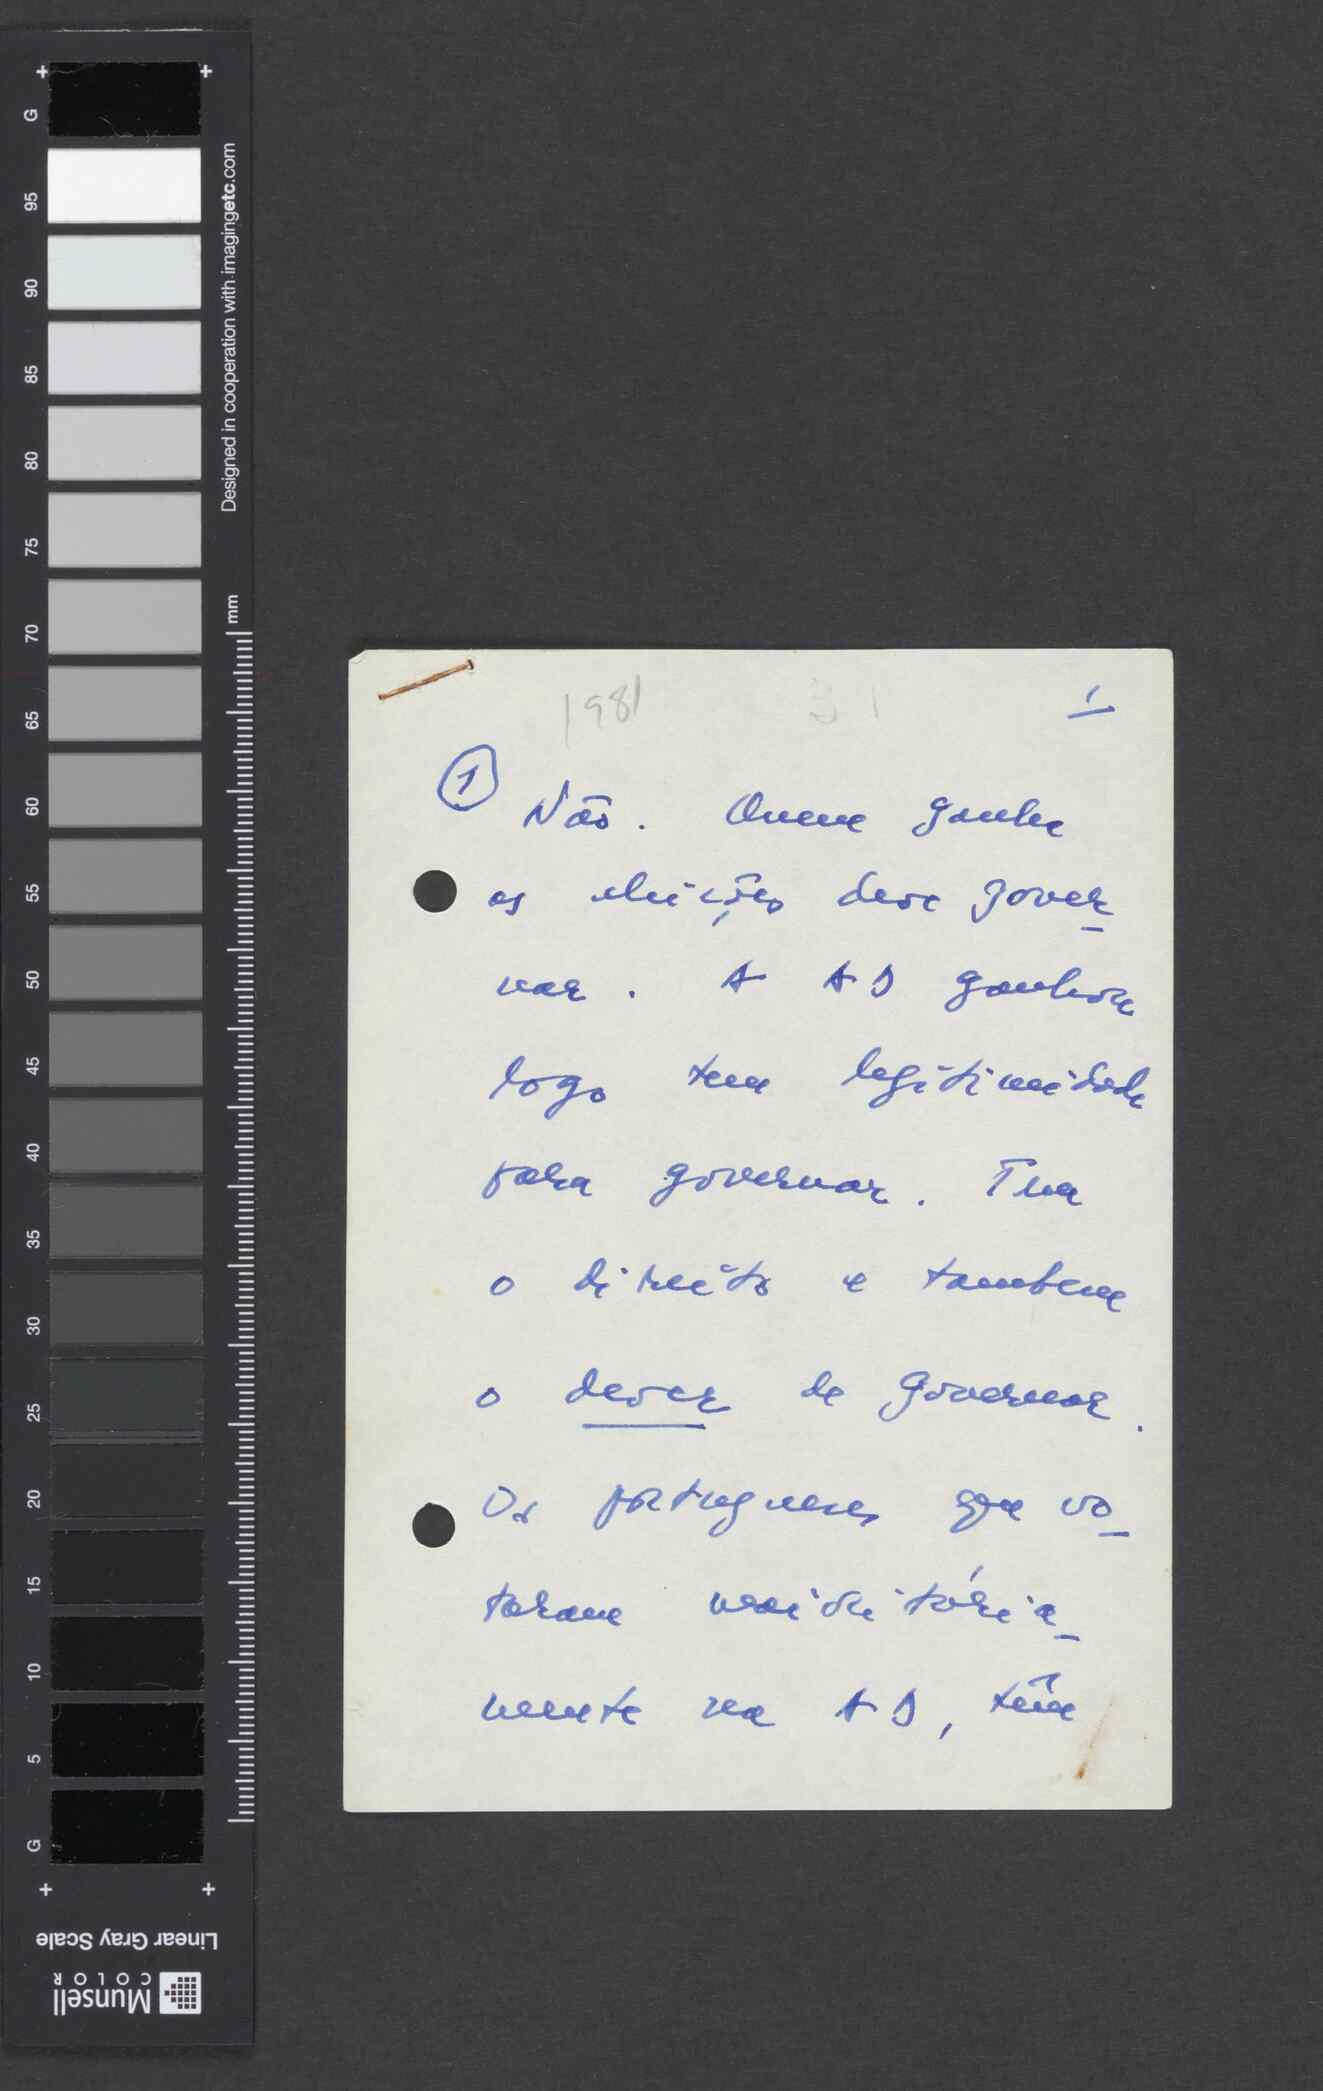 1981 31 1
① Não. Quem ganha
as eleições deve gover
nar. A AD ganhou
logo tem legitimidade
para governar. Tem
o direito e tambem
o dever de governar.
Os portugueses que vo
taram maioritória
mente na AD, têm
G
95
90
85
80
75
70
65
60
55
50
45
40
35
30
25
20
15
10
5
G
Designed in cooperation with imagingetc.com
mm
Linear Gray Scale
Munsell
COLOR